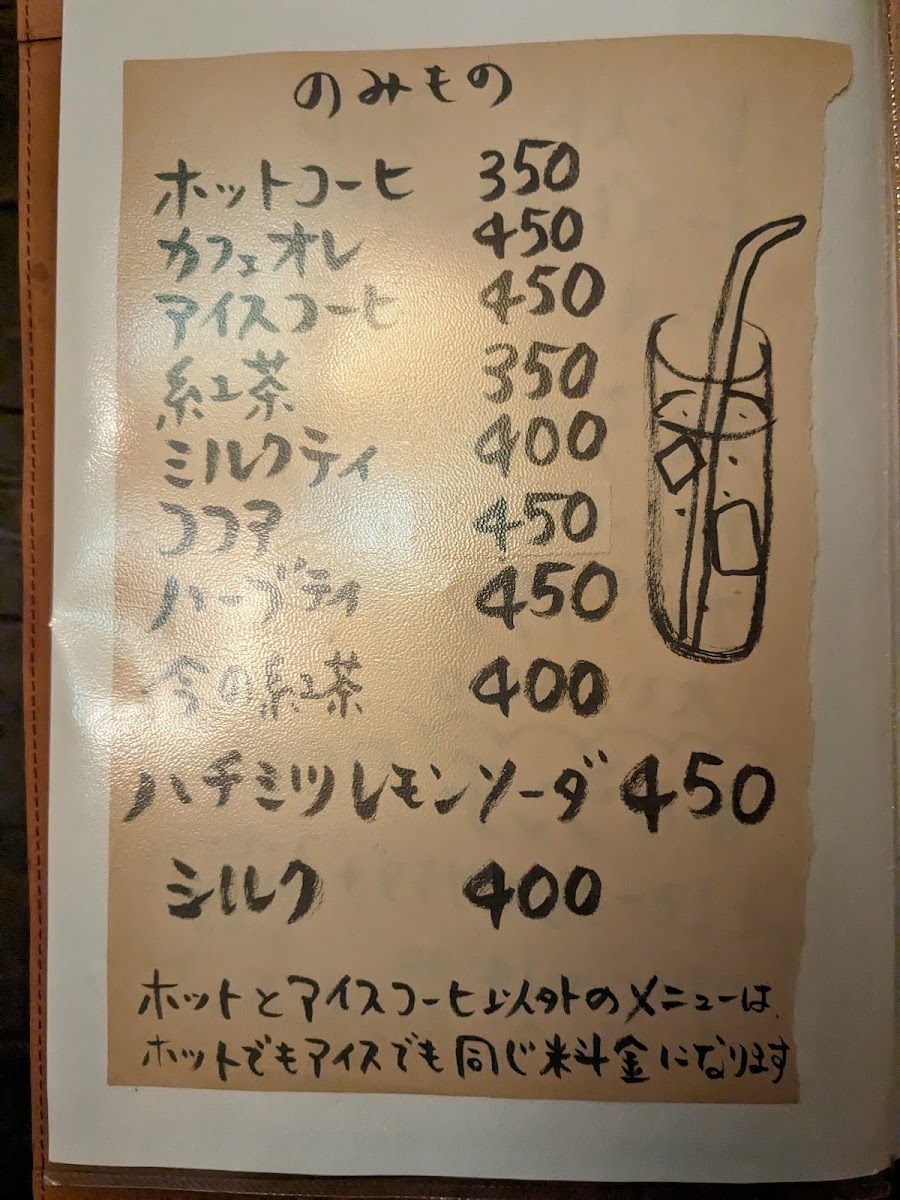 のみもの
ホットコーヒ 350
カフェオレ 450
アイスコーヒ 450
紅茶 350
ミルクティ 400
ココア 450
ハーブティ 450
今の紅茶 400
ハチミツレモンソーダ 450
ミルク 400
ホットとアイスコーヒ以外のメニューは、
ホットでもアイスでも同じ料金になります